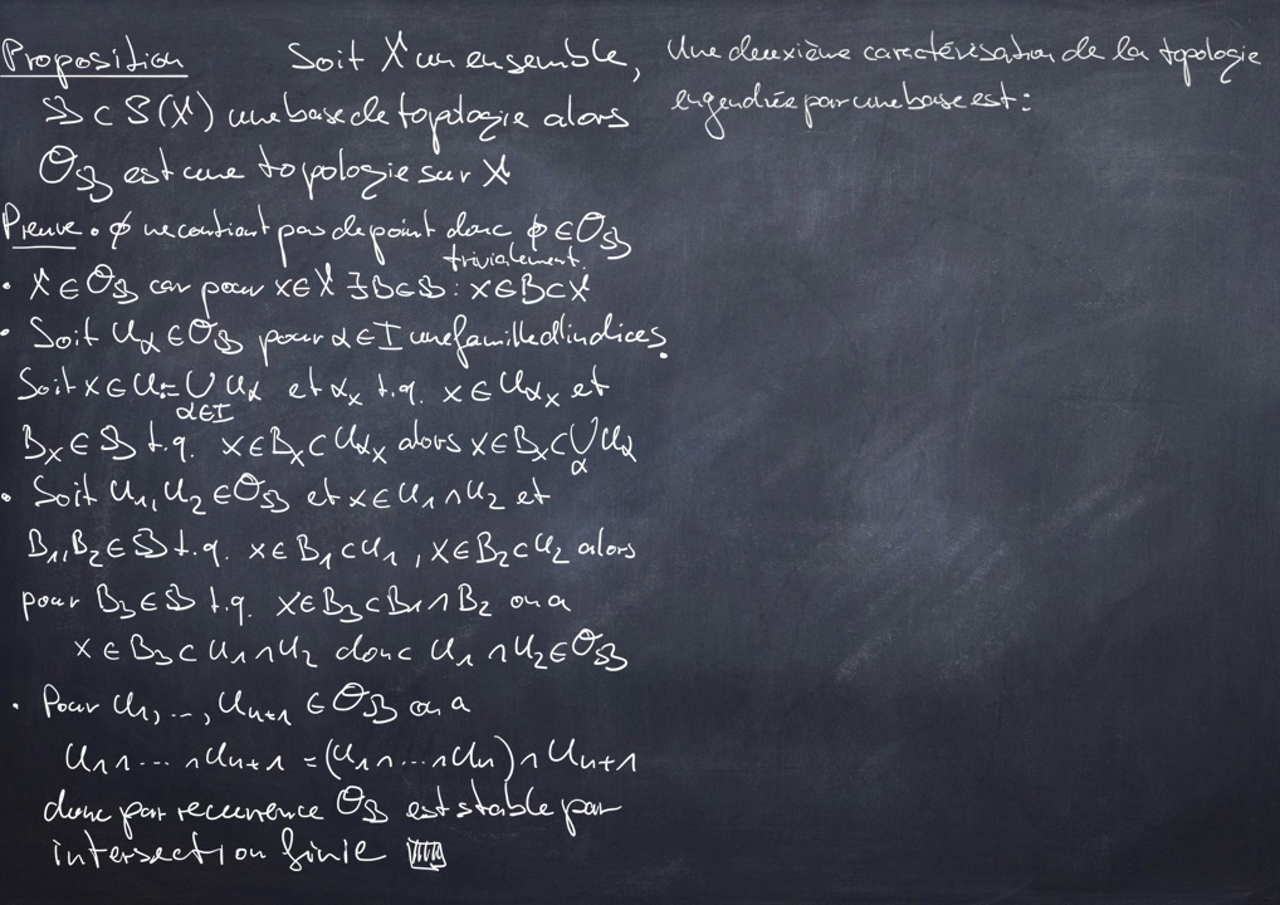 Proposition Soit X un ensemble,
𝔅 ⊂ 𝒫(X) une base de topologie alors
𝒪_𝔅 est une topologie sur X
Preuve • ∅ ne contient pas de point donc ∅ ∈ 𝒪_𝔅
trivialement.
• X ∈ 𝒪_𝔅 car pour x ∈ X ∃ B ∈ 𝔅 : x ∈ B ⊂ X
• Soit U_α ∈ 𝒪_𝔅 pour α ∈ I une famille d'indices.
Soit x ∈ U := ⋃_{α∈I} U_α et α_x t.q. x ∈ U_{α_x} et
B_x ∈ 𝔅 t.q. x ∈ B_x ⊂ U_{α_x} alors x ∈ B_x ⊂ ⋃_α U_α
• Soit U_1, U_2 ∈ 𝒪_𝔅 et x ∈ U_1 ∩ U_2 et
B_1, B_2 ∈ 𝔅 t.q. x ∈ B_1 ⊂ U_1, x ∈ B_2 ⊂ U_2 alors
pour B_3 ∈ 𝔅 t.q. x ∈ B_3 ⊂ B_1 ∩ B_2 on a
x ∈ B_3 ⊂ U_1 ∩ U_2 donc U_1 ∩ U_2 ∈ 𝒪_𝔅
• Pour U_1, ..., U_{n+1} ∈ 𝒪_𝔅 on a
U_1 ∩ ... ∩ U_{n+1} = (U_1 ∩ ... ∩ U_n) ∩ U_{n+1}
donc par recurrence 𝒪_𝔅 est stable par
intersection finie
Une deuxième caractérisation de la topologie
engendrée par une base est :